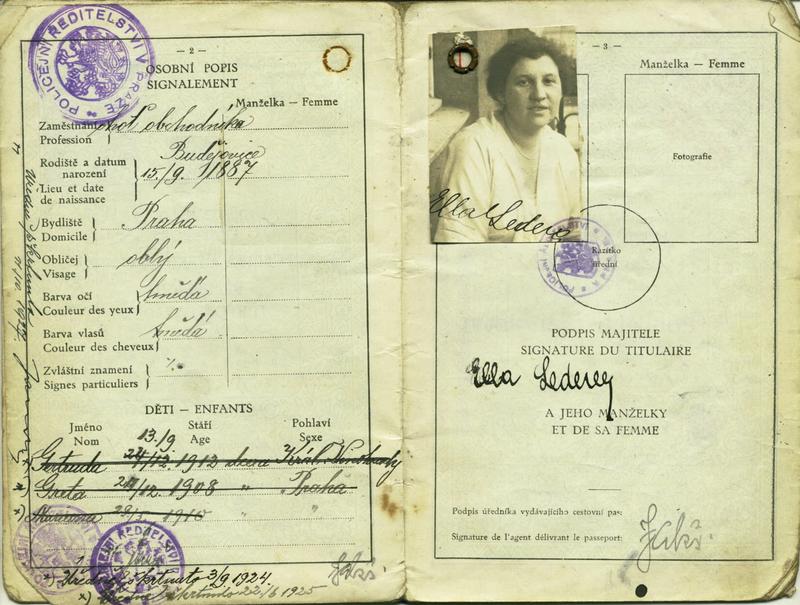 POLICEJNÍ ŘEDITELSTVÍ V PRAZE
— 2 —
OSOBNÍ POPIS
SIGNALEMENT
Manželka — Femme
Zaměstnání
Profession
obchodníka
Rodiště a datum
narození
Lieu et date
de naissance
Budějovice
15./9. 1887
Bydliště
Domicile
Praha
Obličej
Visage
oblý
Barva očí
Couleur des yeux
hnědá
Barva vlasů
Couleur des cheveux
hnědá
Zvláštní znamení
Signes particuliers
DĚTI — ENFANTS
Jméno
Nom
Stáří
Age
Pohlaví
Sexe
13./9
Gertruda 1912 dcera Král. Vinohrady
Greta /12. 1908 " Praha
1910 " "
Úředně škrtnuto 3/9 1924.
škrtnuto 22/6 1925
— 3 —
Manželka — Femme
Fotografie
Ella Lederer
Razítko
úřední
PODPIS MAJITELE
SIGNATURE DU TITULAIRE
Ella Lederer
A JEHO MANŽELKY
ET DE SA FEMME
Podpis úředníka vydávajícího cestovní pas:
Signature de l'agent délivrant le passeport: